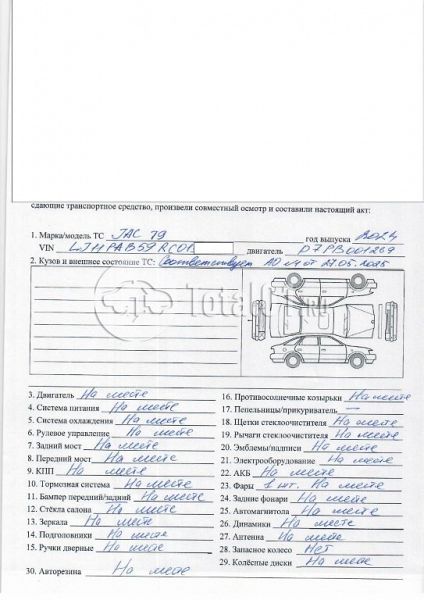 сдающие транспортное средство, произвели совместный осмотр и составили настоящий акт:
1. Марка/модель ТС JAC T9 год выпуска 2024
VIN двигатель
2. Кузов и внешнее состояние ТС: Соответствует АО от 27.05.2025
TotalCT.RU
3. Двигатель На месте
4. Система питания На месте
5. Система охлаждения На месте
6. Рулевое управление На месте
7. Задний мост На месте
8. Передний мост На месте
9. КПП На месте
10. Тормозная система На месте
11. Бампер передний/задний На месте
12. Стёкла салона На месте
13. Зеркала На месте
14. Подголовники На месте
15. Ручки дверные На месте
30. Авторезина На месте
16. Противосолнечные козырьки На месте
17. Пепельницы/прикуриватель —
18. Щетки стеклоочистителя На месте
19. Рычаги стеклоочистителя На месте
20. Эмблемы/надписи На месте
21. Электрооборудование На месте
22. АКБ На месте
23. Фары 1 шт. На месте
24. Задние фонари На месте
25. Автомагнитола На месте
26. Динамики На месте
27. Антенна На месте
28. Запасное колесо Нет
29. Колёсные диски На месте